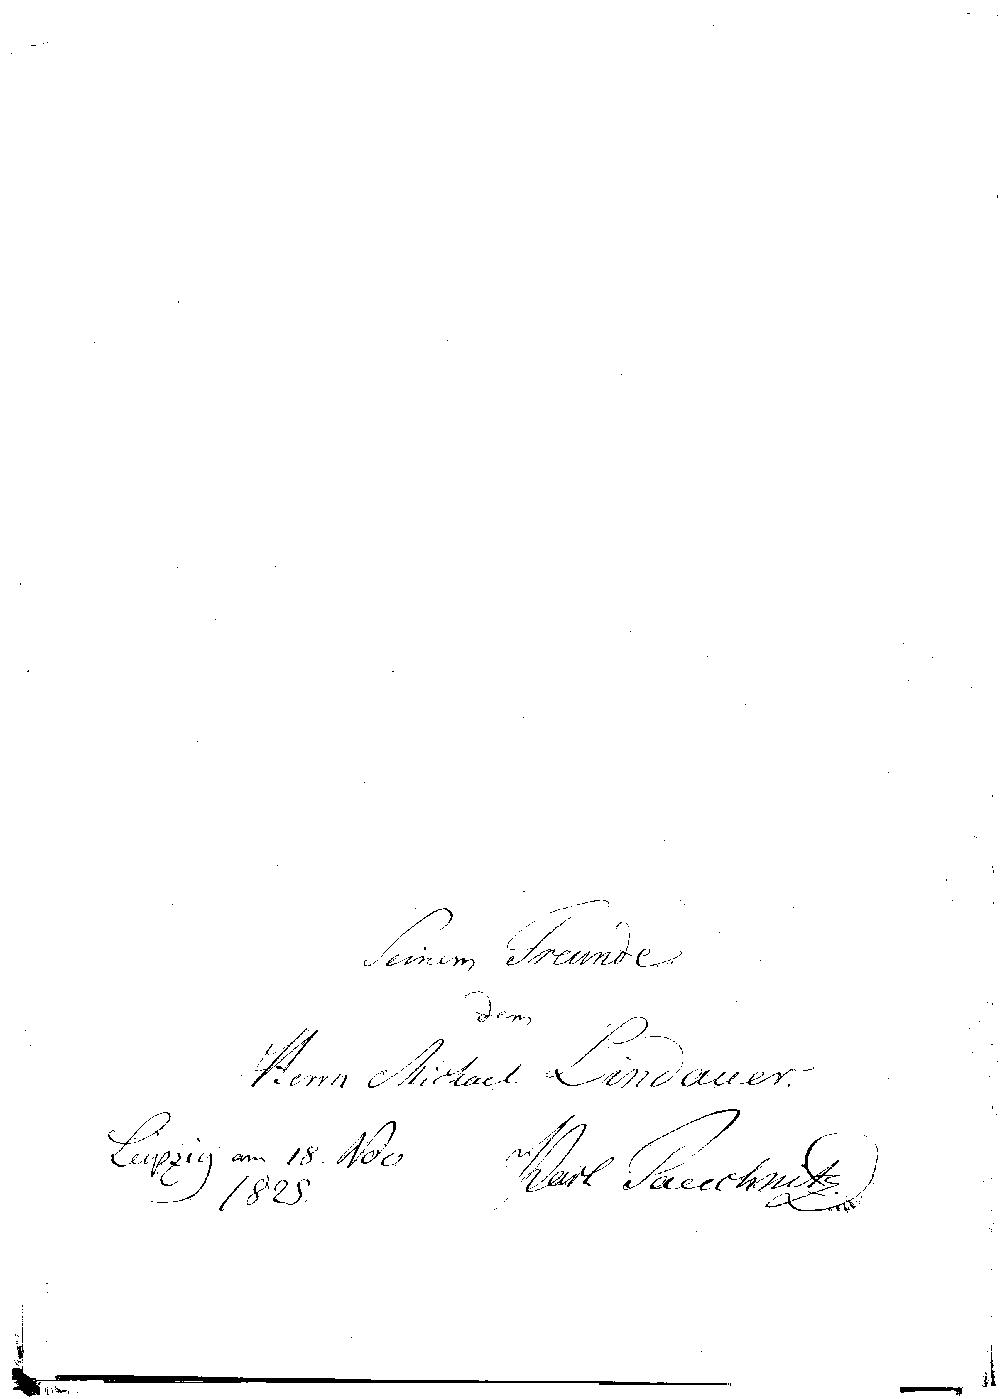 Seinem Freunde
dem
Herrn Michael Lindauer.
Leipzig am 18. Nov
1828.
Karl Tauchnitz